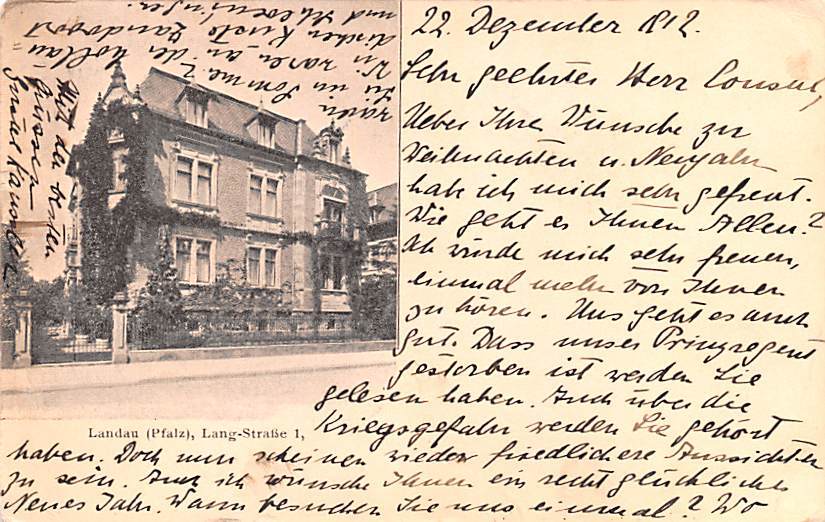 22. Dezember 1912.
Sehr geehrter Herr Consul,
Ueber Ihre Wünsche zu
Weihnachten u. Neujahr
habe ich mich sehr gefreut.
Wie geht es Ihnen Allen?
Ich würde mich sehr freuen,
einmal mehr von Ihnen
zu hören. Uns geht es auch
gut. Dass unser Prinzregent
gestorben ist werden Sie
gelesen haben. Auch über die
Kriegsgefahr werden Sie gehört
haben. Doch nun scheinen wieder friedlichere Aussichten
zu sein. Auch ich wünsche Ihnen ein recht glückliches
Neues Jahr. Wann besuchen Sie uns einmal? Wo
waren Sie im Sommer?
Wir waren an der hollän-
dischen Küste Zandvoort
und
Mit den besten
Grüssen
Landau (Pfalz), Lang-Straße 1,